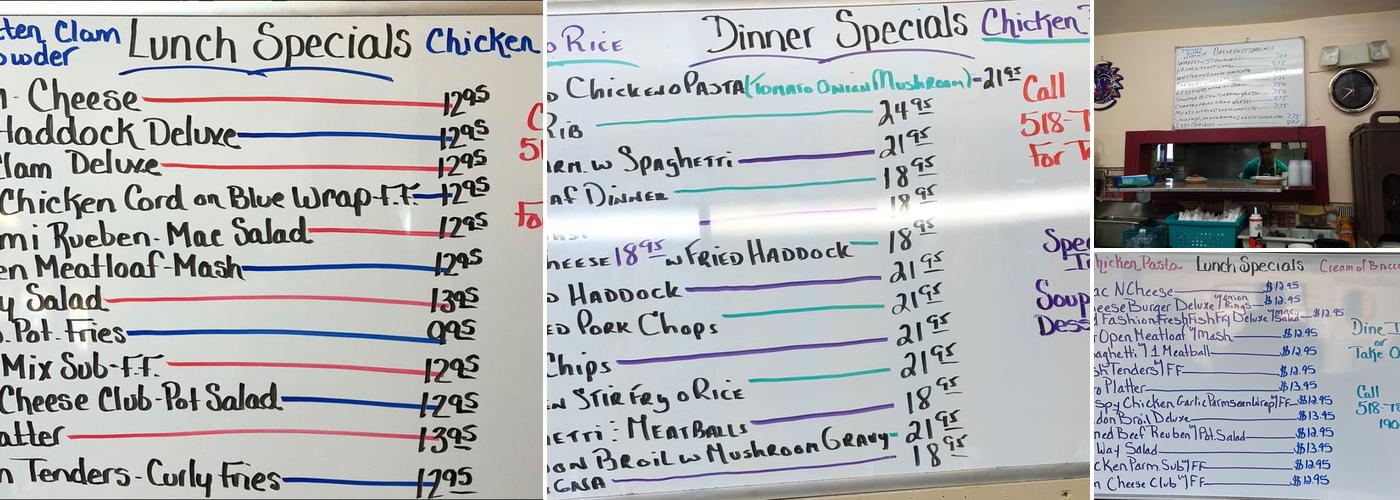 ten Clam Lunch Specials Chicken
owder
Cheese 12.95
Haddock Deluxe 12.95
lam Deluxe 12.95
Chicken Cord on Blue Wrap-F.F. 12.95
mi Rueben-Mac Salad 12.95
en Meatloaf-Mash 12.95
y Salad 13.95
Pot-Fries 9.95
Mix Sub-F.F. 12.95
Cheese Club-Pot Salad 12.95
atter 13.95
n Tenders-Curly Fries 12.95
o Rice Dinner Specials Chicken
Chicken o Pasta (Tomato Onion Mushroom) - 21.95
Rib 24.95
arm. w Spaghetti 21.95
af Dinner 18.95
18.95
heese 18.95 w Fried Haddock 18.95
Haddock 21.95
ed Pork Chops 21.95
Chips 21.95
n Stir Fry o Rice 21.95
etti : Meatballs 18.95
on Broil w Mushroom Gravy 21.95
gna 18.95
Call
518-7
For T
Spec
Soup
Dess
Breakfast Specials
Chicken Pasta Lunch Specials Cream of Brocc
ac N Cheese $12.95
eese Burger Deluxe w/onion Rings $12.95
d Fashion Fresh Fish Fry Deluxe w/mac Salad $12.95
Open Meatloaf w/mash $12.95
aghetti w/1 Meatball $12.95
Tenders w/FF $12.95
o Platter $13.95
spy Chicken Garlic Parmsean Wrap w/FF $12.95
don Broil Deluxe $13.95
ned Beef Reuben w/Pot.Salad $12.95
Way Salad $13.95
cken Parm Sub w/FF $12.95
n Cheese Club w/FF $12.95
Dine I
or
Take O
Call
518-75
190